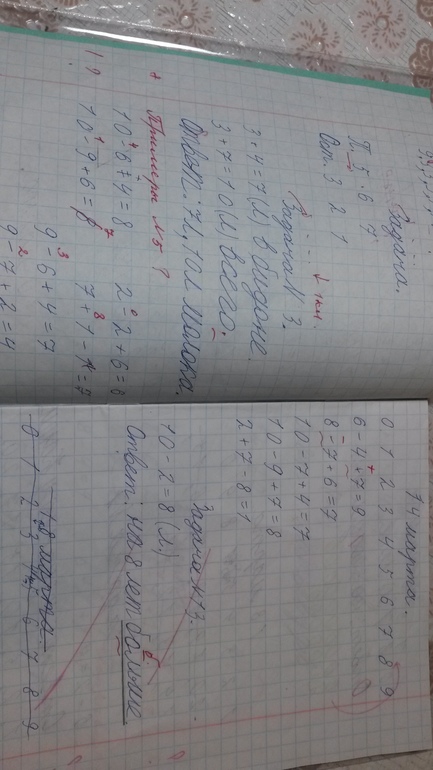 Задача.
П. 5 6 7
Ост. 3 2 1
1 км.
Задача № 3.
3+4=7(л) в бидоне.
3+7=10(л) всего.
Ответ: 7л, 10л молока.
Примеры № 5 ?
10-6+4=8 2-2+6=8
10-9+6=7 7+1-1=7
9-6+4=7
9-7+2=4
14 марта.
0 1 2 3 4 5 6 7 8 9
6-4+7=9
8-7+6=7
10-7+4=7
10-9+7=8
2+7-8=1
Задача № 3.
10-2=8(л.)
Ответ: на 8 лет больше
0 1 2 3 4 5 6 7 8 9